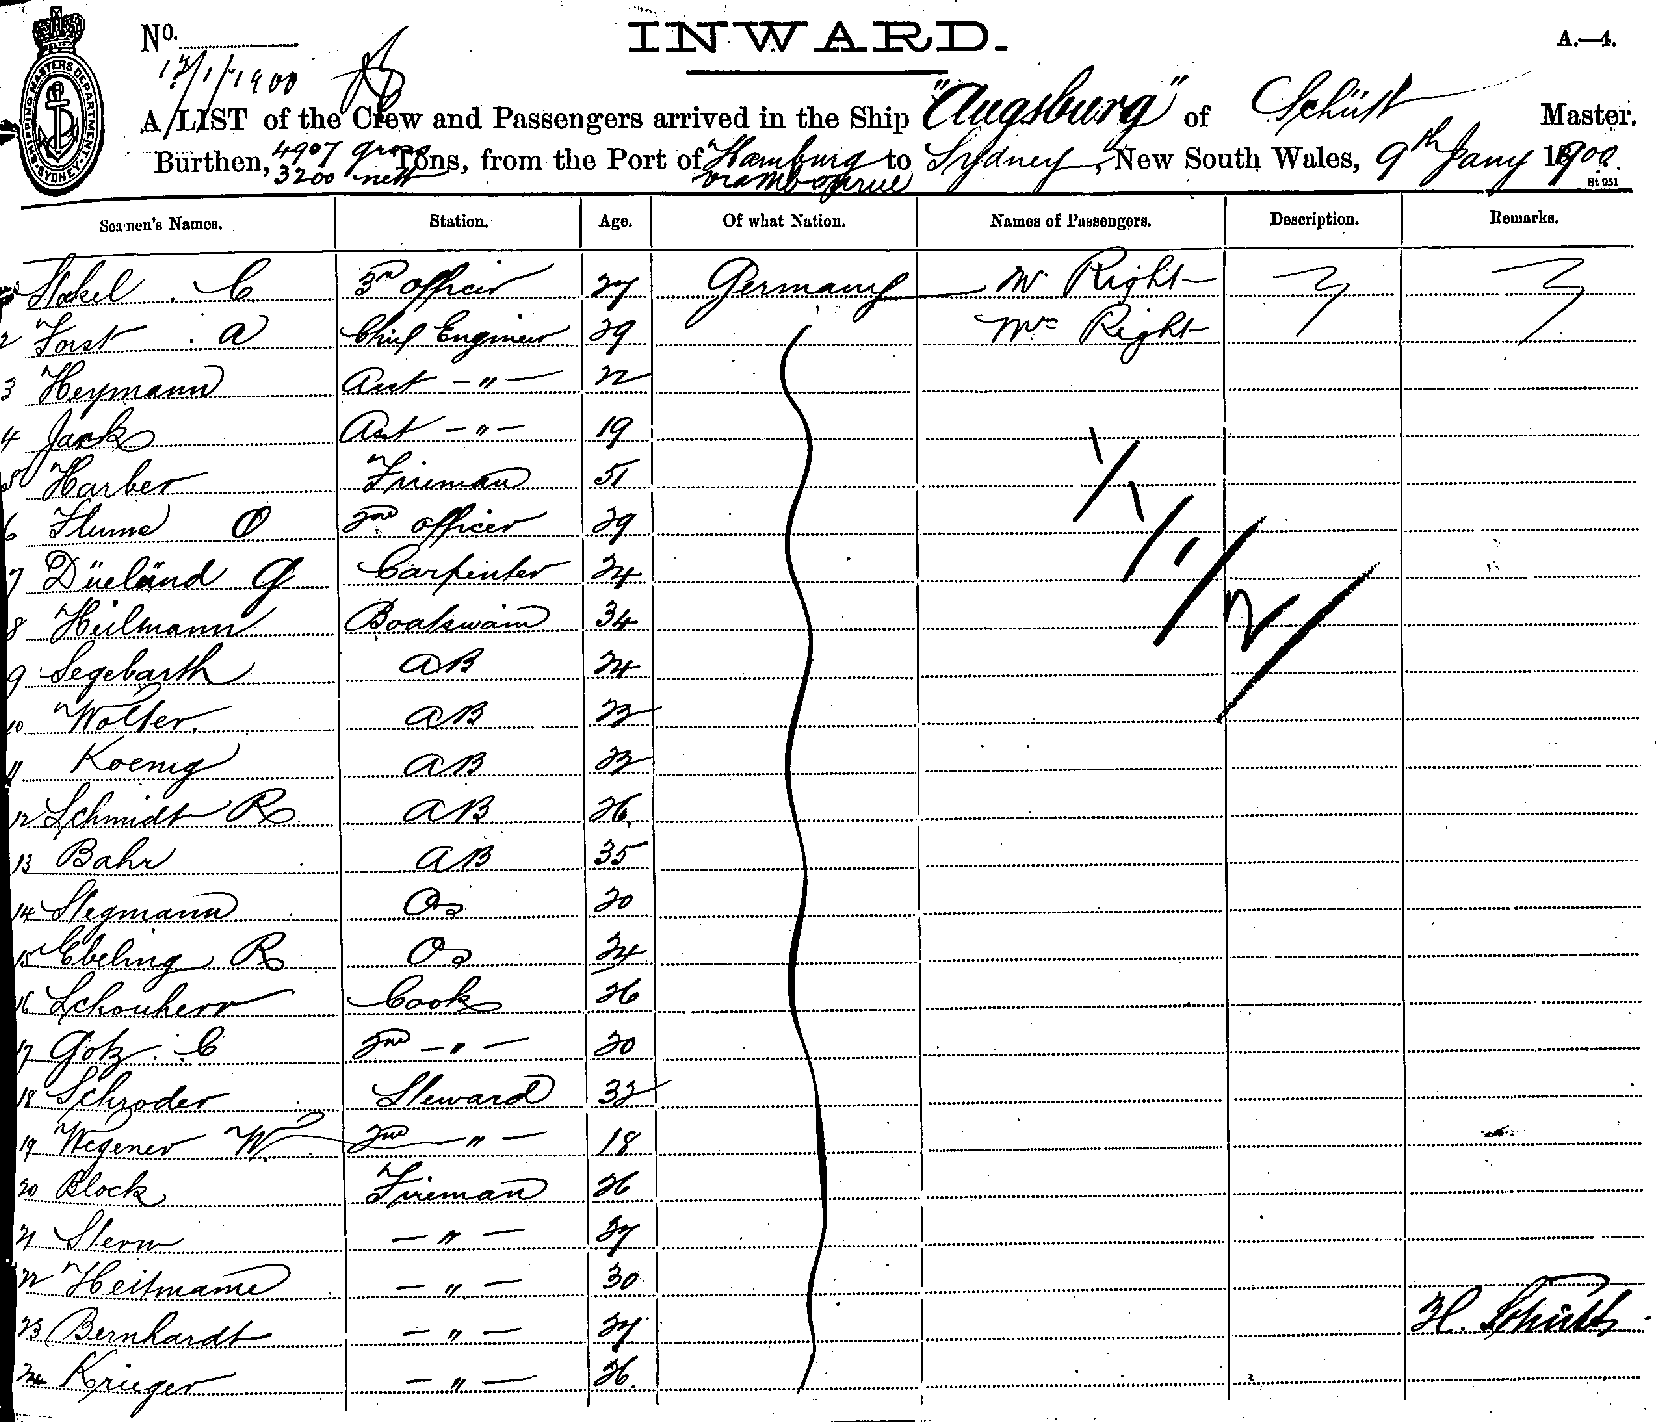 SHIPPING MASTERS DEPARTMENT SYDNEY
INWARD.
No.
A.—4.
12/1/1900
A LIST of the Crew and Passengers arrived in the Ship "Augsburg" of Schütt Master.
Burthen, 4907 gross 3200 nett Tons, from the Port of Hamburg via Mbourne to Sydney, New South Wales, 9th Jany 1900.
St 251
Seamen's Names. Station. Age. Of what Nation. Names of Passengers. Description. Remarks.
Stokel C 3rd officer 27 Germany Mr Right
2 Forst A Chief Engineer 29 Mrs Right
3 Heymann Asst —"— 22
4 Jack Asst —"— 19
5 Harber Fireman 51
6 Flume O 2nd officer 29
7 Düeländ G Carpenter 24
8 Heilmann Boatswain 34
9 Segebarth AB 24
10 Wolter AB 22
11 Koenig AB 22
12 Schmidt R AB 26
13 Bahr AB 35
14 Stegmann Os 20
15 Ebeling R Os 24
16 Schonherr Cook 26
17 Götz C 2nd —"— 20
18 Schroder Steward 32
19 Wegener W 2nd —"— 18
20 Block Fireman 26
21 Stern —"— 27
22 Heitmann —"— 30
23 Bernhardt —"— 27
24 Krieger —"— 26
H. Schütt